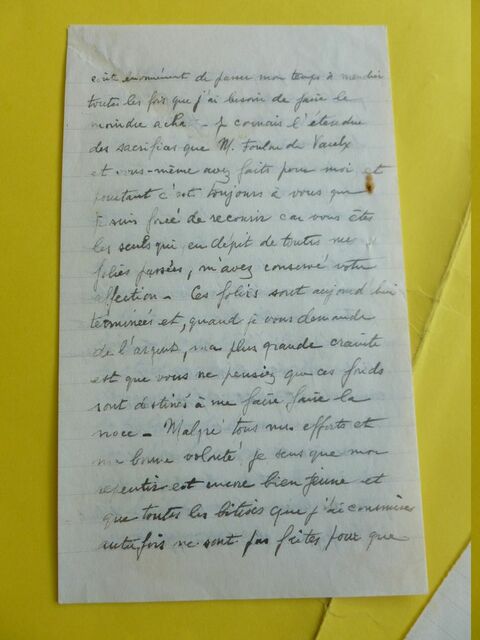 coûte énormément de passer mon temps à mendier
toutes les fois que j'ai besoin de faire le
moindre achat - je connais l'étendue
des sacrifices que M. Foulon de Vaulx
et vous-même avez faits pour moi et
pourtant c'est toujours à vous que
je suis forcé de recourir car vous êtes
les seuls qui en dépit de toutes mes
folies passées, m'avez conservé votre
affection - Ces folies sont aujourd'hui
terminées et, quand je vous demande
de l'argent, ma plus grande crainte
est que vous ne pensiez que ces fonds
sont destinés à me faire faire la
noce - Malgré tous mes efforts et
ma bonne volonté je sens que mon
repentir est encore bien jeune et
que toutes les bêtises que j'ai commises
autrefois ne sont pas faites pour que